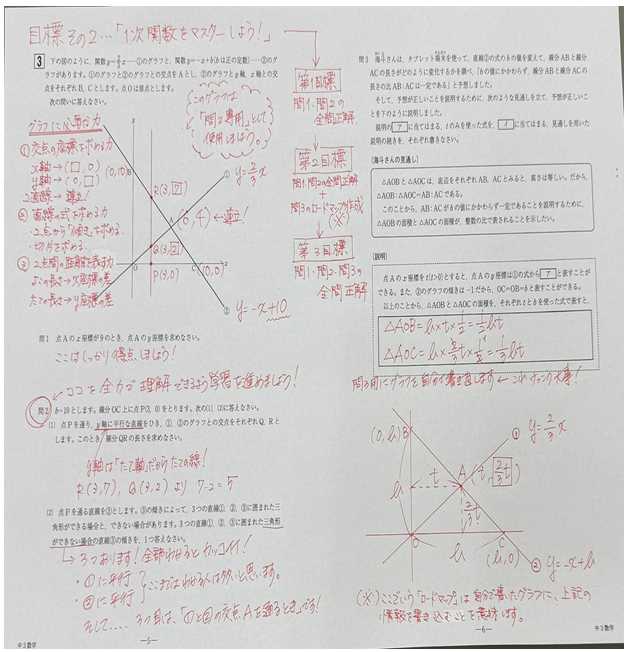 目標その2…「1次関数をマスターしよう!」
3 下の図のように、関数y=2/3x……①のグラフと、関数y=-x+b(bは正の定数)……②のグ
ラフがあります。①のグラフと②のグラフの交点をAとし、②のグラフとy軸、x軸との交
点をそれぞれB、Cとします。点Oは原点とします。
次の問いに答えなさい。
このグラフは
「問2専用」として
使用しましょう。
グラフに必要な力
① 交点の座標を求める力
x軸→(□, 0)
y軸→(0, □)
2直線→連立!
② 直線の式を求める力
・2点から「傾き」を求める
・切片を求める
③ 2点間の距離を表す力
よこの長さ→x座標の差
たての長さ→y座標の差
(0,10)
B
① y=2/3x
R(3,7)
A
(6,4)←連立!
Q(3,2)
O
P(3,0)
C
(10,0)
x
②
y=-x+10
問1 点Aのx座標が9のとき、点Aのy座標を求めなさい。
ここはしっかり得点しましょう!
ココを全力で理解できるよう学習を進めましょう!
問2 b=10とします。線分OC上に点P(3, 0)をとります。次の(1)、(2)に答えなさい。
(1) 点Pを通り、y軸に平行な直線をひき、①、②のグラフとの交点をそれぞれQ、Rと
します。このとき、線分QRの長さを求めなさい。
y軸は「たて軸」だからたての線!
R(3,7), Q(3,2) より 7-2=5
(2) 点Pを通る直線を③とします。③の傾きによって、3つの直線①、②、③に囲まれた三
角形ができる場合と、できない場合があります。3つの直線①、②、③に囲まれた三角形
ができない場合の直線③の傾きを、1つ答えなさい。
→3つあります!全部わかるとカッコイイ!
・①に平行
・②に平行
ここまではわかる人は多いと思います。
そして…… 3つ目は、「①と②の交点Aを通るとき」です!
-5-
中3数学
第1目標
問1・問2の
全問正解
第2目標
問1・問2の全問正解
+
問3のロードマップ作成
(※)
第3目標
問1・問2・問3の
全問正解
問3 海斗さんは、タブレット端末を使って、直線②の式のbの値を変えて、線分ABと線分
ACの長さがどのように変化するかを調べ、「bの値にかかわらず、線分ABと線分ACの
長さの比AB:ACは一定である」と予想しました。
そして、予想が正しいことを説明するために、次のような見通しを立て、予想が正しい
ことを下のように説明しました。
説明の ア に当てはまる、tのみを使った式を、 イ に当てはまる、見通しを用いた
説明の続きを、それぞれ書きなさい。
(海斗さんの見通し)
△AOBと△AOCは、底辺をそれぞれAB、ACとみると、高さは等しい。だから、
△AOB:△AOC=AB:ACである。
このことから、AB:ACがbの値にかかわらず一定であることを説明するために、
△AOBの面積と△AOCの面積が、整数の比で表されることを示したい。
(説明)
点Aのx座標をt(t>0)とすると、点Aのy座標は①の式から ア と表すことが
できる。また、②のグラフの傾きは-1だから、OC=OB=bと表すことができる。
以上のことから、△AOBと△AOCの面積を、それぞれtとbを使った式で表すと、
△AOB=b×t×1/2=1/2bt
△AOC=b×2/3t×1/2=1/3bt
問3用にグラフを自分で書き直します ← これすっごく大事!
(0,b)
B
① y=2/3x
A
(t, 2/3t)
t
b
2/3t
O
b
C
(b,0)
② y=-x+b
(※)ここでいう「ロードマップ」は自分で書いたグラフに、上記の
情報を書き込むことを意味します。
-6-
中3数学